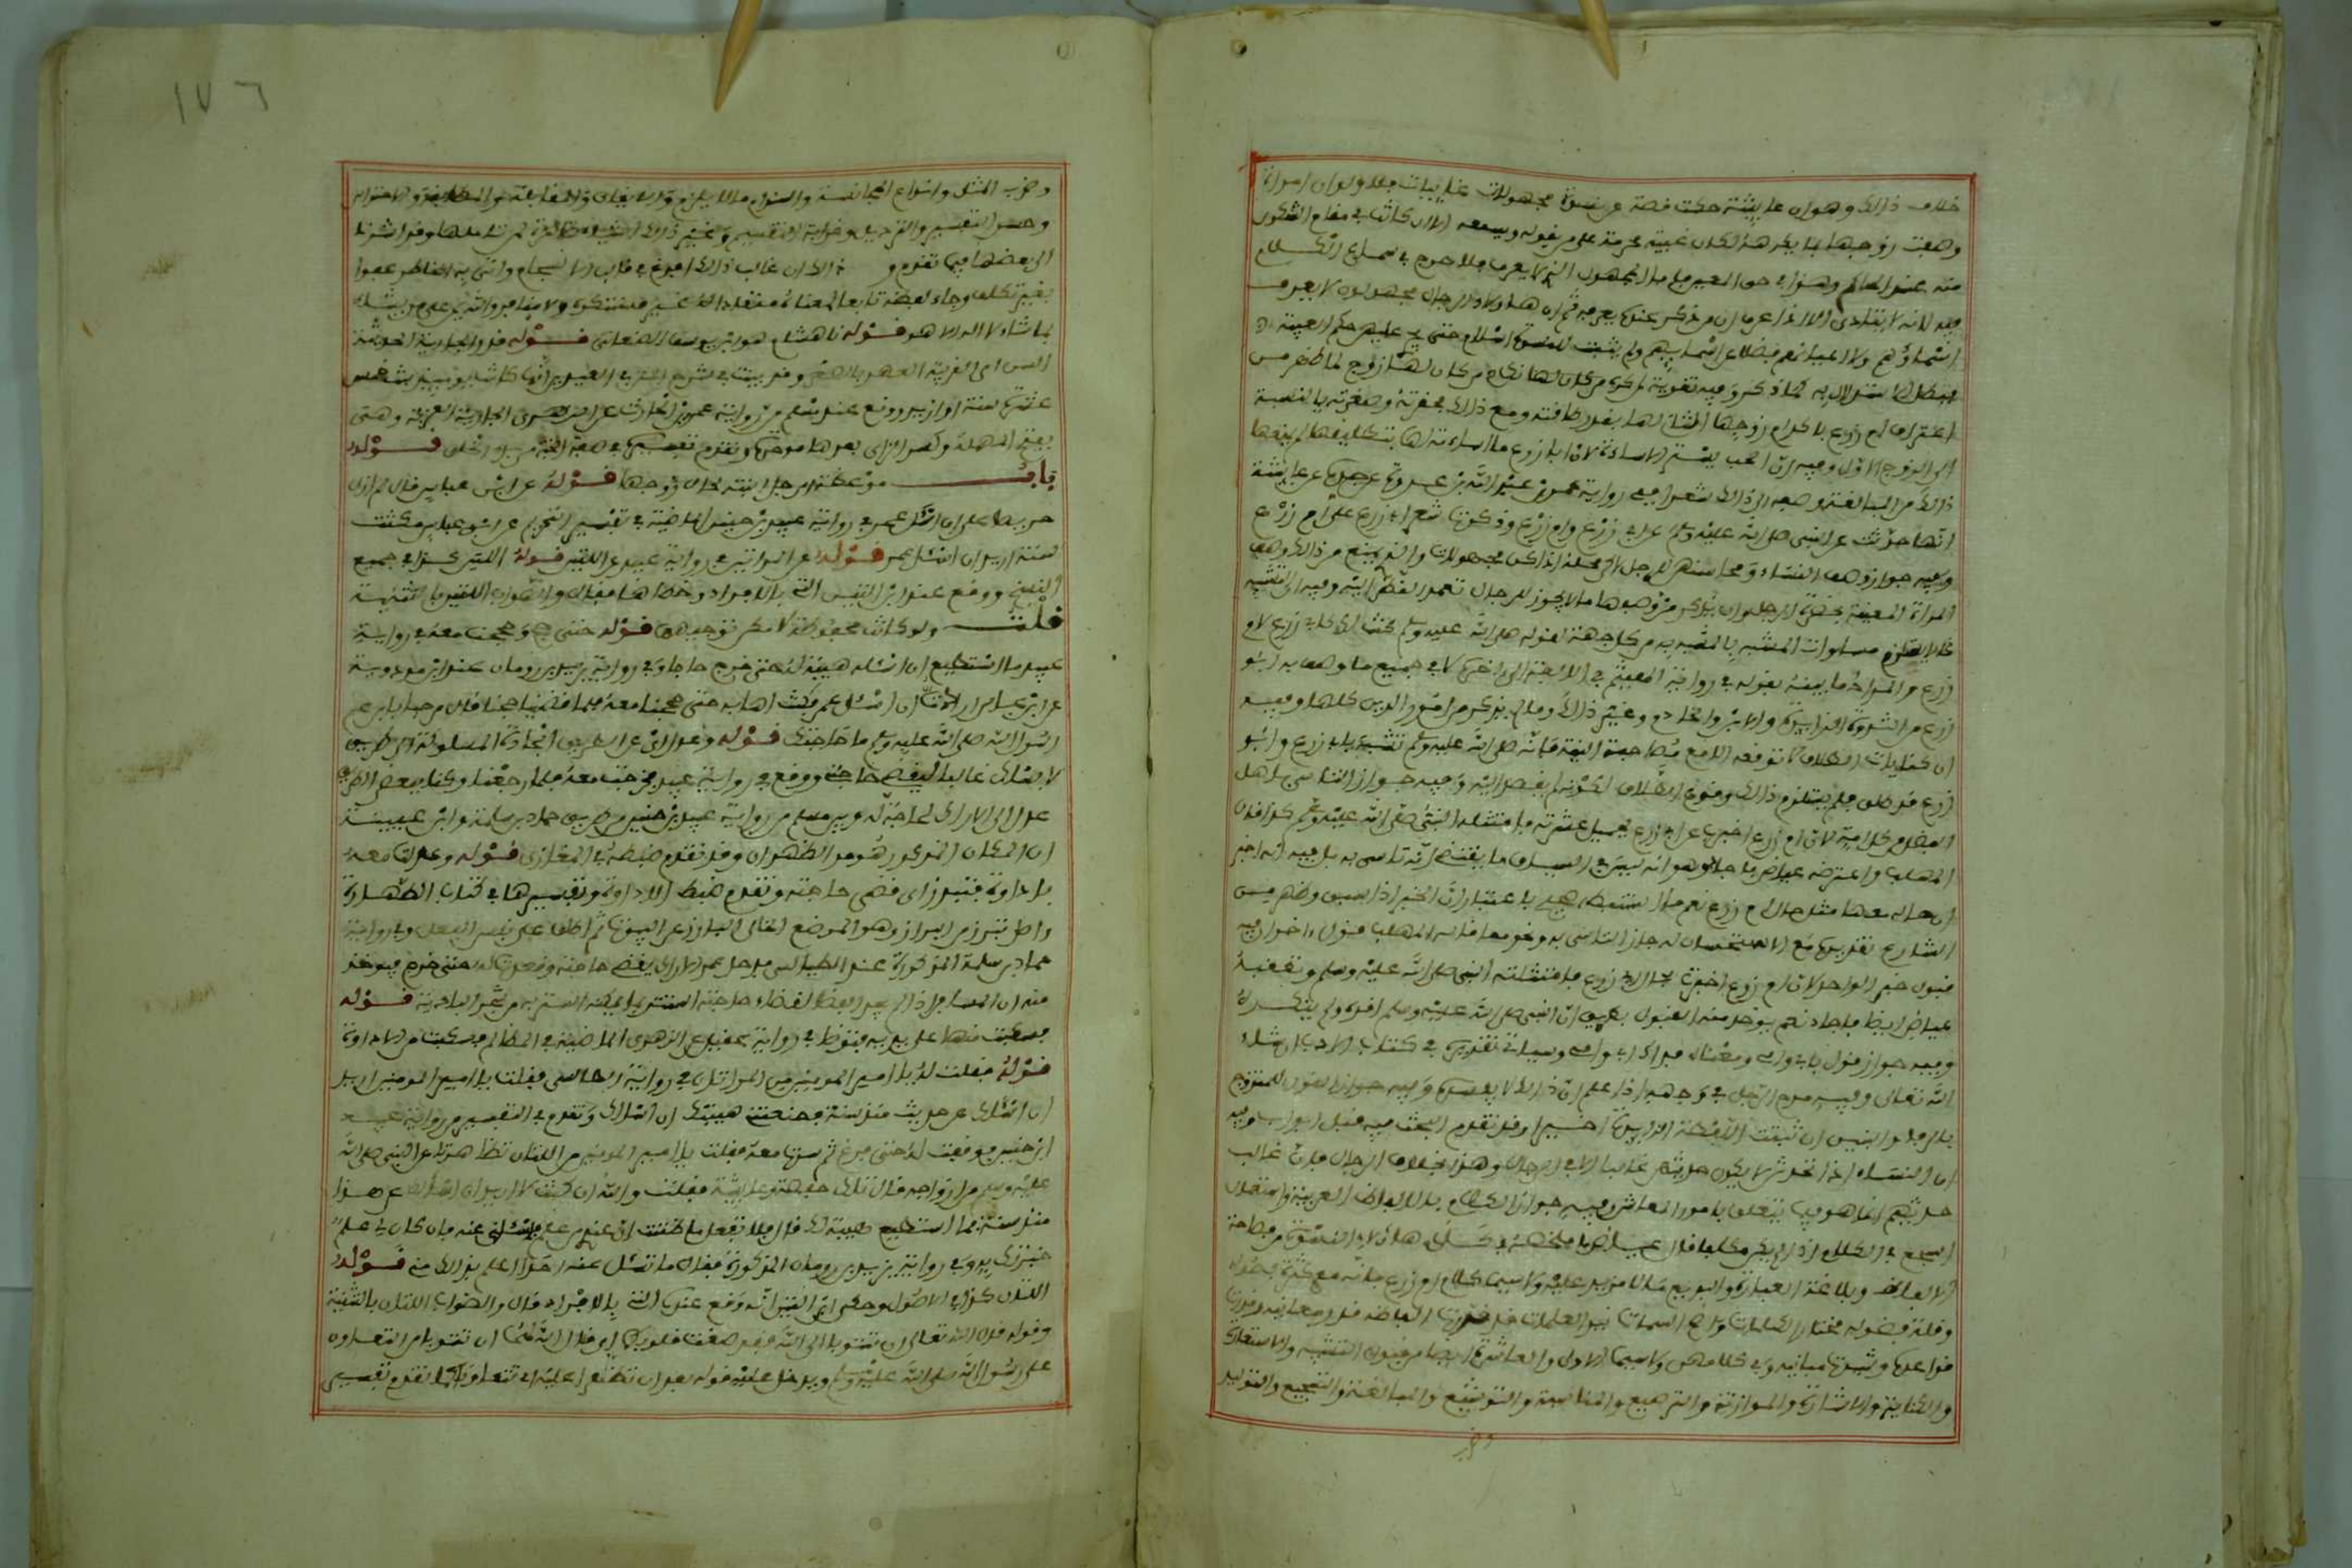 خلاف ذلك وهو ان عايشة حكت قصة عن نسوة مجهولات غايبات فلو ان امراة
وصفت زوجها بما يكرهه لكان غيبة محرمة على من يقوله ويسمعه الا ان كانت في مقام الشكوى
منه عند الحاكم وهذا في حق المعين فاما المجهول الذي لا يعرف فلا حرج في سماع الكلام
فيه لانه لا يتاذى الا اذا عرف ان من ذكر عنده يعرفه ثم ان هاولاء الرجال مجهولون لا يعرف
اسماؤهم ولا اعيانهم فضلا عن اسمايهم ولم يثبت للنسوة اسلام حتى يجري عليهن حكم الغيبة
فبطل الاستدلال به لما ذكر وفيه تقوية لمن كره نكاح من كان لها زوج لما ظهر من
اعتراف ام زرع باكرام زوجها الثاني لها بقدر طاقته ومع ذلك فحقرته وصغرته بالنسبة
الى الزوج الاول وفيه ان الحب يستر الاساءة لان ابا زرع مع اساءته لها بتطليقها لم يمنعها
ذلك من المبالغة في وصفه
انها حدثت عن النبي صلى الله عليه وسلم عن ابي زرع وام زرع وذكرت شعر ابي زرع على ام زرع
وفيه جواز وصف النساء ومحاسنهن للرجل لكن محله اذا كن مجهولات والذي يمنع من ذلك وصف
المراة المعينة بحضرة الرجل او ان يذكر من وصفها ما لا يجوز للرجال تعمد النظر اليه وفيه ان التشبيه
لا يستلزم مساوات المشبه بالمشبه به من كل جهة لقوله صلى الله عليه وسلم كنت لك كابي زرع لام
زرع والمراد ما بينه بقوله في رواية الهيثم في الالفة الى اخره لا في جميع ما وصف به ابو
زرع من الثروة الزايدة والابن والخادم وغير ذلك وما لم يذكر من امور الدين كلها وفيه
ان كنايات الطلاق لا توقعه الا مع مصاحبة النية فانه صلى الله عليه وسلم تشبه بابي زرع وابو
زرع قد طلق فلم يستلزم ذلك وقوع الطلاق لكونه لم يقصد اليه وفيه جواز التاسي باهل
الفضل من كل امة لان ام زرع اخبرت عن ابي زرع بجميل عشرته فامتثله النبي صلى الله عليه وسلم كذا قال
المهلب واعترضه عياض فاجاد وهو انه ليس في السياق ما يقتضي انه تاسى به بل فيه انه اخبر
ان حاله معها مثل حال ام زرع نعم ما استنبطه صحيح باعتبار ان الخبر اذا سيق وظهر من
الشارع تقريره مع الاستحسان له جاز التاسي به ونحو مما قاله المهلب قول اخر ان فيه
قبول خبر الواحد لان ام زرع اخبرت بحال ابي زرع فامتثله النبي صلى الله عليه وسلم وتعقبه
عياض ايضا فاجاد نعم يوخذ منه القبول بطريق ان النبي صلى الله عليه وسلم اقره ولم ينكره
وفيه جواز قول بابي وامي ومعناه فداك ابي وامي وسياتي تقريره في كتاب الادب ان شاء
الله تعالى وفيه مدح الرجل في وجهه اذا علم ان ذلك لا يفسده وفيه جواز القول للمتزوج
بالرفا والبنين ان ثبتت اللفظة الزايدة اخيرا وقد تقدم البحث فيه قبل ابواب وفيه
ان النساء اذا تحدثن ان لا يكون حديثهن غالبا الا في الرجال وهذا بخلاف الرجال فان غالب
حديثهم انما هو فيما يتعلق بامور المعاش وفيه جواز الكلام بالالفاظ الغريبة واستعمال
السجع في الكلام اذا لم يكن مكلفا قال عياض ما ملخصه في كلام هاولاء النسوة من فصاحة
الالفاظ وبلاغة العبارة والبديع مالا مزيد عليه ولا سيما كلام ام زرع فانه مع كثرة فصوله
وقلة فضوله مختار الكلمات واضح السمات نير القسمات قد قدرت الفاظه قدر معانيه وقررت
قواعده وشيدت مبانيه وفي كلامهن ولا سيما الاولى والعاشرة ايضا من فنون التشبيه والاستعارة
والكناية والاشارة والموازنة والترصيع والمناسبة والتوشيع والمبالغة والتسجيع والتوليد
وضرب
١٧٦
وضرب المثل وانواع المجانسة والزام ما لا يلزم والايغال والمقابلة والمطابقة والاحتراس
وحسن التفسير والترديد وغرابة التقسيم وغير ذلك اشياء ظاهرة لمن تاملها وقد اشرنا
الى بعضها فيما تقدم و ذلك ان غالب ذلك افرغ في قالب الانسجام واتى به الخاطر عفوا
بغير تكلف وجاء لفظه تابعا لمعناه منقادا له غير مستكره ولا منافر والله يمن على من يشاء
بما شاء لا اله الا هو قوله نا هشام هو ابن يوسف الصنعاني قوله قدر الجارية الحديثة
السن اي القريبة العهد بالصغر وقد بينت في شرح المتن في العيدين انها كانت يوميذ بنت خمس
عشرة سنة او ازيد ووقع عند مسلم من رواية عمرو بن الحارث عن الزهري الجارية العربة وهي
بفتح المهملة وكسر الراء بعدها موحدة وتقدم تفسيره في صفة الجنة من بدء الخلق قوله
باب موعظة الرجل ابنته لحال زوجها قوله عن ابن عباس قال لم ازل
حريصا على ان اسال عمر في رواية عبيد بن حنين الماضية في تفسير التحريم عن ابن عباس مكثت
سنة اريد ان اسال عمر قوله عن المراتين في رواية عبيد عن اللتين قوله اللتين كذا في جميع
النسخ ووقع عند ابن التين التي بالافراد وخطاها فقال والصواب اللتين بالتثنية
قلت ولو كانت محفوظة لامكن توجيهها قوله حتى حج وحججت معه في رواية
عبيد ما استطيع ان اساله هيبة له حتى خرج حاجا وفي رواية يزيد بن رومان عند ابن مردويه
عن ابن عباس اردت ان اسال عمر فكنت اهابه حتى حججنا معه فلما قضينا حجنا قال مرحبا بابن عم
رسول الله صلى الله عليه وسلم ما حاجتك قوله وعدل اي عن الطريق الجادة المسلوكة الى طريق
لا يسلك غالبا ليقضي حاجته ووقع في رواية عبيد فخرجت معه فلما رجعنا وكنا ببعض الطريق
عدل الى الاراك لحاجة له وبين مسلم من رواية عبيد بن حنين من طريق حماد بن سلمة وابن عيينة
ان المكان المذكور هو مر الظهران وقد تقدم ضبطه في المغازي قوله وعدلت معه
باداوة فتبرز اي قضى حاجته وتقدم ضبط الاداوة وتفسيرها في كتاب الطهارة
واصل تبرز من البراز وهو الموضع الخالي البارز عن البيوت ثم اطلق على نفس الفعل وفي رواية
حماد بن سلمة المذكورة عند الطيالسي فدخل عمر الاراك يقضي حاجته وقعدت له حتى خرج فيوخذ
منه ان المسافر اذا لم يجد الفضاء لقضاء حاجته استتر بما يمكنه الستر به من شجر البادية قوله
فسكبت منها على يديه فتوضا في رواية عقيل عن الزهري الماضية في المظالم فسكبت من الاداوة
قوله فقلت له يا امير المومنين من المراتان في رواية الطيالسي فقلت يا امير المومنين اريد
ان اسالك عن حديث منذ سنة فتمنعني هيبتك ان اسالك وتقدم في التفسير من رواية عبيد
ابن حنين فوقفت له حتى فرغ ثم سرت معه فقلت يا امير المومنين من اللتان تظاهرتا على النبي صلى الله
عليه وسلم من ازواجه قال تلك حفصة وعايشة فقلت والله ان كنت لاريد ان اسالك عن هذا
منذ سنة فما استطيع هيبة لك قال فلا تفعل ما ظننت ان عندي من علم فسلني عنه فان كان لي علم
خبرتك به وفي رواية يزيد بن رومان المذكورة فقال ما تسال عنه احدا اعلم بذلك مني قوله
اللتان كذا في الاصول وحكى ابن التين انه وقع عنده التي بالافراد قال والصواب اللتان بالتثنية
وقوله قال الله تعالى ان تتوبا الى الله فقد صغت قلوبكما اي قال الله لهما ان تتوبا من التعاون
على رسول الله صلى الله عليه وسلم ويدل عليه قوله بعد وان تظاهرا عليه اي تتعاونا كما تقدم تفسيره